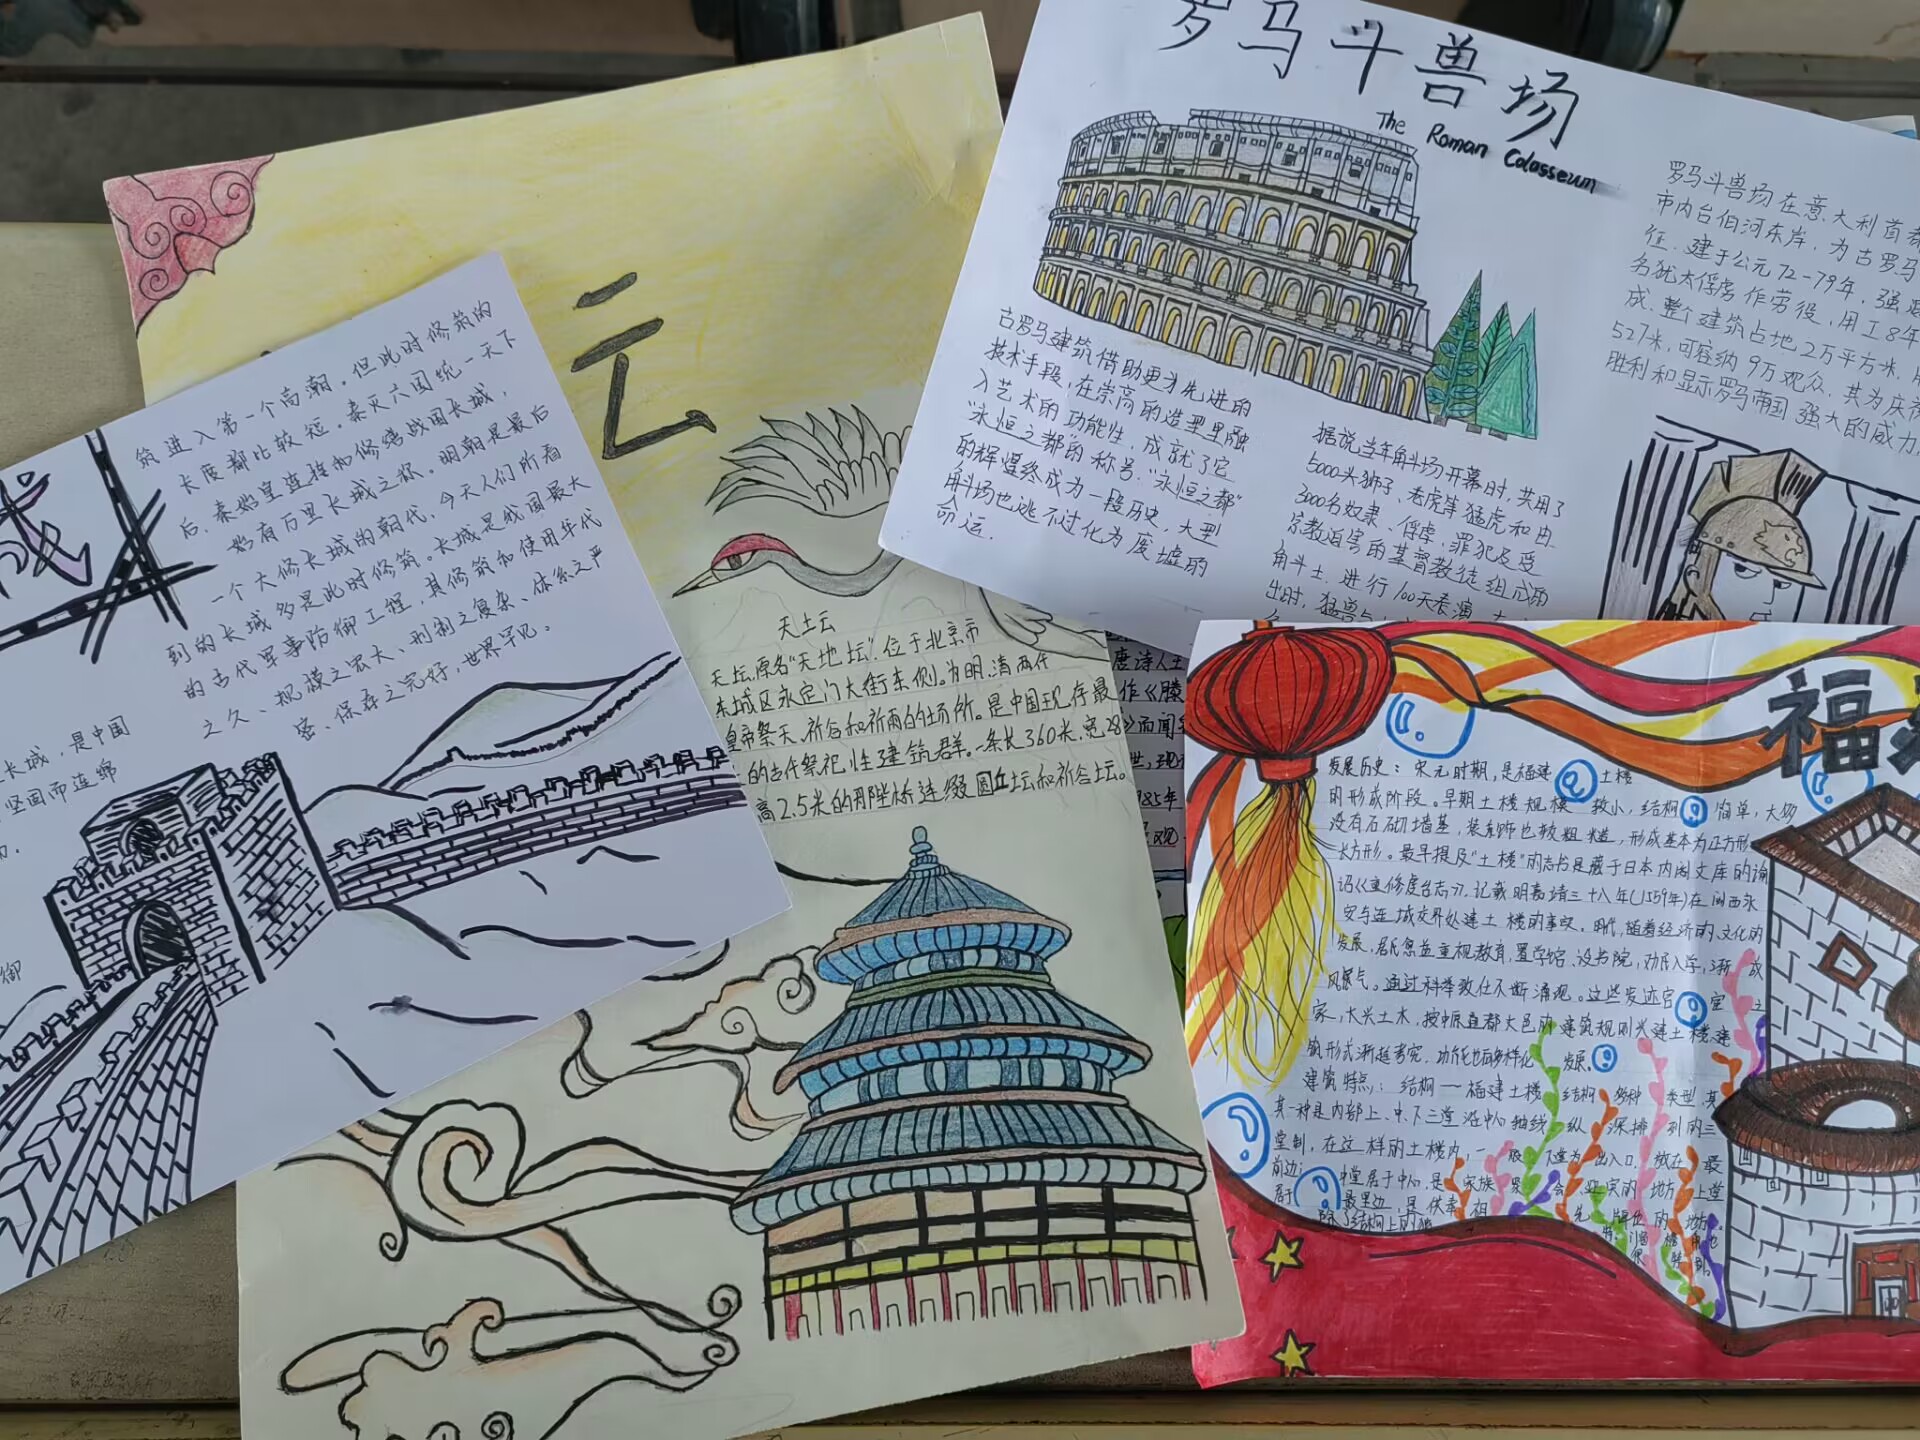 罗马斗兽场
The Roman Colasseum
罗马斗兽场在意大利首都
市内台伯河东岸，为古罗马
征.建于公元72-79年，强迫
名犹太俘虏作劳役，用工8年
成.整个建筑占地2万平方米.
527米，可容纳9万观众.其为庆祝
胜利和显示罗马帝国强大的威力
古罗马建筑借助更为先进的
技术手段，在崇高的造型里融
入艺术的功能性，成就了它
“永恒之都”的称号.“永恒之都”
的辉煌终成为一段历史，大型
角斗场也逃不过化为废墟的
命运.
据说当年角斗场开幕时，共用了
5000头狮子，老虎等猛虎和由
3000名奴隶、俘虏、罪犯及受
宗教迫害的基督教徒组成的
角斗士，进行100天表演
出时，猛兽与
云
天土云
天坛，原名“天地坛”.位于北京市
东城区永定门大街东侧。为明、清两代
皇帝祭天、祈谷和祈雨的场所。是中国现存最
的古代祭祀性建筑群。一条长360米、宽28
高2.5米的丹陛桥连缀圜丘坛和祈谷坛。
唐诗人王
作《滕
》而闻名
世，现
985年
观
城
筑进入第一个高朝。但此时修筑的
长度都比较短。秦灭六国统一天下
后，秦始皇连接和修缮战国长城，
始有万里长城之称。明朝是最后
一个大修长城的朝代，今天人们所看
到的长城多是此时修筑。长城是我国最大
的古代军事防御工程，其修筑和使用年代
之久、规模之宏大、形制之复杂、体系之严
密、保存之完好，世界罕见。
长城，是中国
坚固而连绵
御
福
发展历史：宋元时期，是福建土楼
的形成阶段。早期土楼规模较小，结构简单，大多
没有石砌墙基，装饰也较粗糙，形成基本为正方形
长方形。最早提及“土楼”的志书是藏于日本内阁文库的
《重修虔台志》，记载明嘉靖三十八年(1559年)在闽西永
安与连城交界处建土楼的事实。明代，随着经济的、文化的
发展，居民愈益重视教育，置学馆、设书院，劝民入学，渐成
风气。通过科举致仕不断涌现。这些发迹官宦之
家，大兴土木，按中原直都大邑的建筑规则兴建土楼，建
筑形式渐趋考究，功能也多样化发展。
建筑特点：结构一福建土楼结构多种类型其
某一种是内部上、中、下三堂沿中心轴线纵深排列的三
堂制，在这样的土楼内，一般下堂为出入口，放在最
前边；中堂居于中心，是家族聚会迎宾的地方上堂
居最里边，是供奉祖先牌位的地方。
除了结构上的独